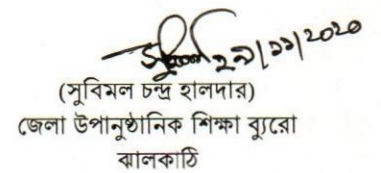 ২৯/১১/২০২০
(সুবিমল চন্দ্র হালদার)
জেলা উপানুষ্ঠানিক শিক্ষা ব্যুরো
ঝালকাঠি